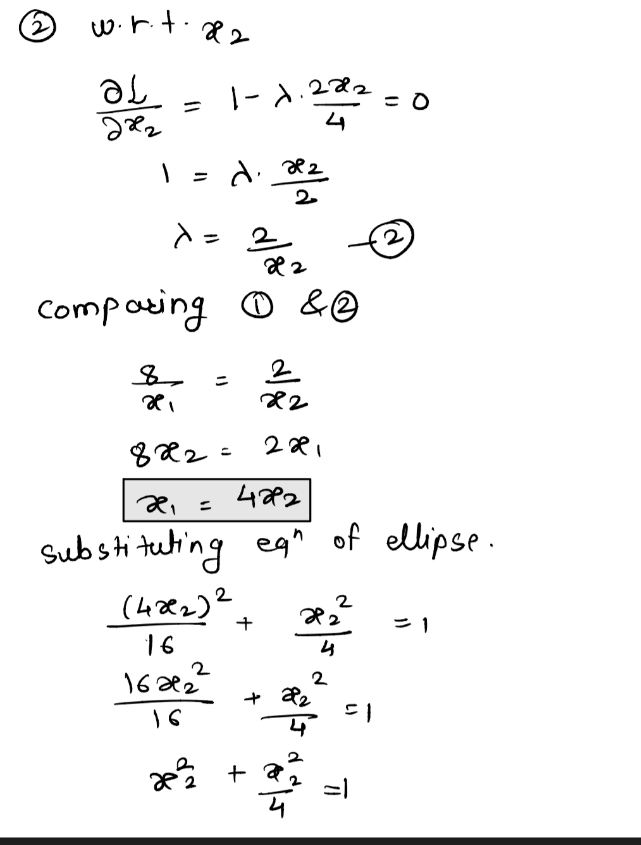 ② w.r.t. x₂
∂L/∂x₂ = 1 - λ. 2x₂/4 = 0
1 = λ. x₂/2
λ = 2/x₂ —②
comparing ① & ②
8/x₁ = 2/x₂
8x₂ = 2x₁
x₁ = 4x₂
substituting eqⁿ of ellipse.
(4x₂)²/16 + x₂²/4 = 1
16x₂²/16 + x₂²/4 = 1
x₂² + x₂²/4 = 1